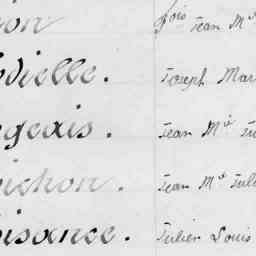 ion fois Jean Mie
vielle. Joseph Mar
geais. Jean Mie Ju
ichon. Jean Mie Juli
oisance. Julien Louis